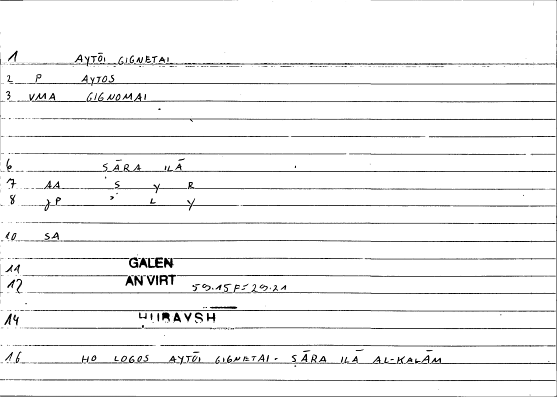 1 AYTŌI GIGNETAI
2 P AYTOS
3 VMA GIGNOMAI
6 ṢĀRA ILĀ
7 AA Ṣ Y R
8 JP ʾ L Y
10 SA
11 GALEN
12 AN VIRT 59.15F=29.21
14 ḤUBAYSH
16 HO LOGOS AYTŌI GIGNETAI. ṢĀRA ILĀ AL-KALĀM